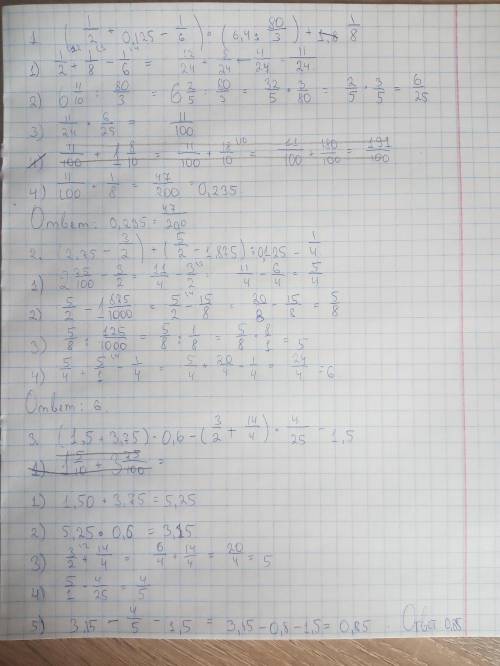 1. (1/2 + 0,125 - 1/6) · (6,4 : 80/3) + 1/8
1) 1/2 + 1/8 - 1/6 = 12/24 + 3/24 - 4/24 = 11/24
2) 6 4/10 : 80/3 = 6 2/5 : 80/3 = 32/5 · 3/80 = 2/5 · 3/5 = 6/25
3) 11/24 · 6/25 = 11/100
4) 11/100 + 1 8/10 = 11/100 + 18/10 = 11/100 + 180/100 = 191/100
4) 11/100 + 1/8 = 47/200 = 0,235
Ответ: 0,235 = 47/200
2. (2,75 - 3/2) + (5/2 - 1,875) : 0,125 - 1/4
1) 2 75/100 - 3/2 = 11/4 - 3/2 = 11/4 - 6/4 = 5/4
2) 5/2 - 1 875/1000 = 5/2 - 15/8 = 20/8 - 15/8 = 5/8
3) 5/8 : 125/1000 = 5/8 : 1/8 = 5/8 · 8/1 = 5
4) 5/4 + 5/1 - 1/4 = 5/4 + 20/4 - 1/4 = 24/4 = 6
Ответ: 6.
3. (1,5 + 3,75) · 0,6 - (3/2 + 14/4) · 4/25 - 1,5
1) 1 5/10 + 3 75/100 =
1) 1,50 + 3,75 = 5,25
2) 5,25 · 0,6 = 3,15
3) 3/2 + 14/4 = 6/4 + 14/4 = 20/4 = 5
4) 5/1 · 4/25 = 4/5
5) 3,15 - 4/5 - 1,5 = 3,15 - 0,8 - 1,5 = 0,85. Ответ 0,85